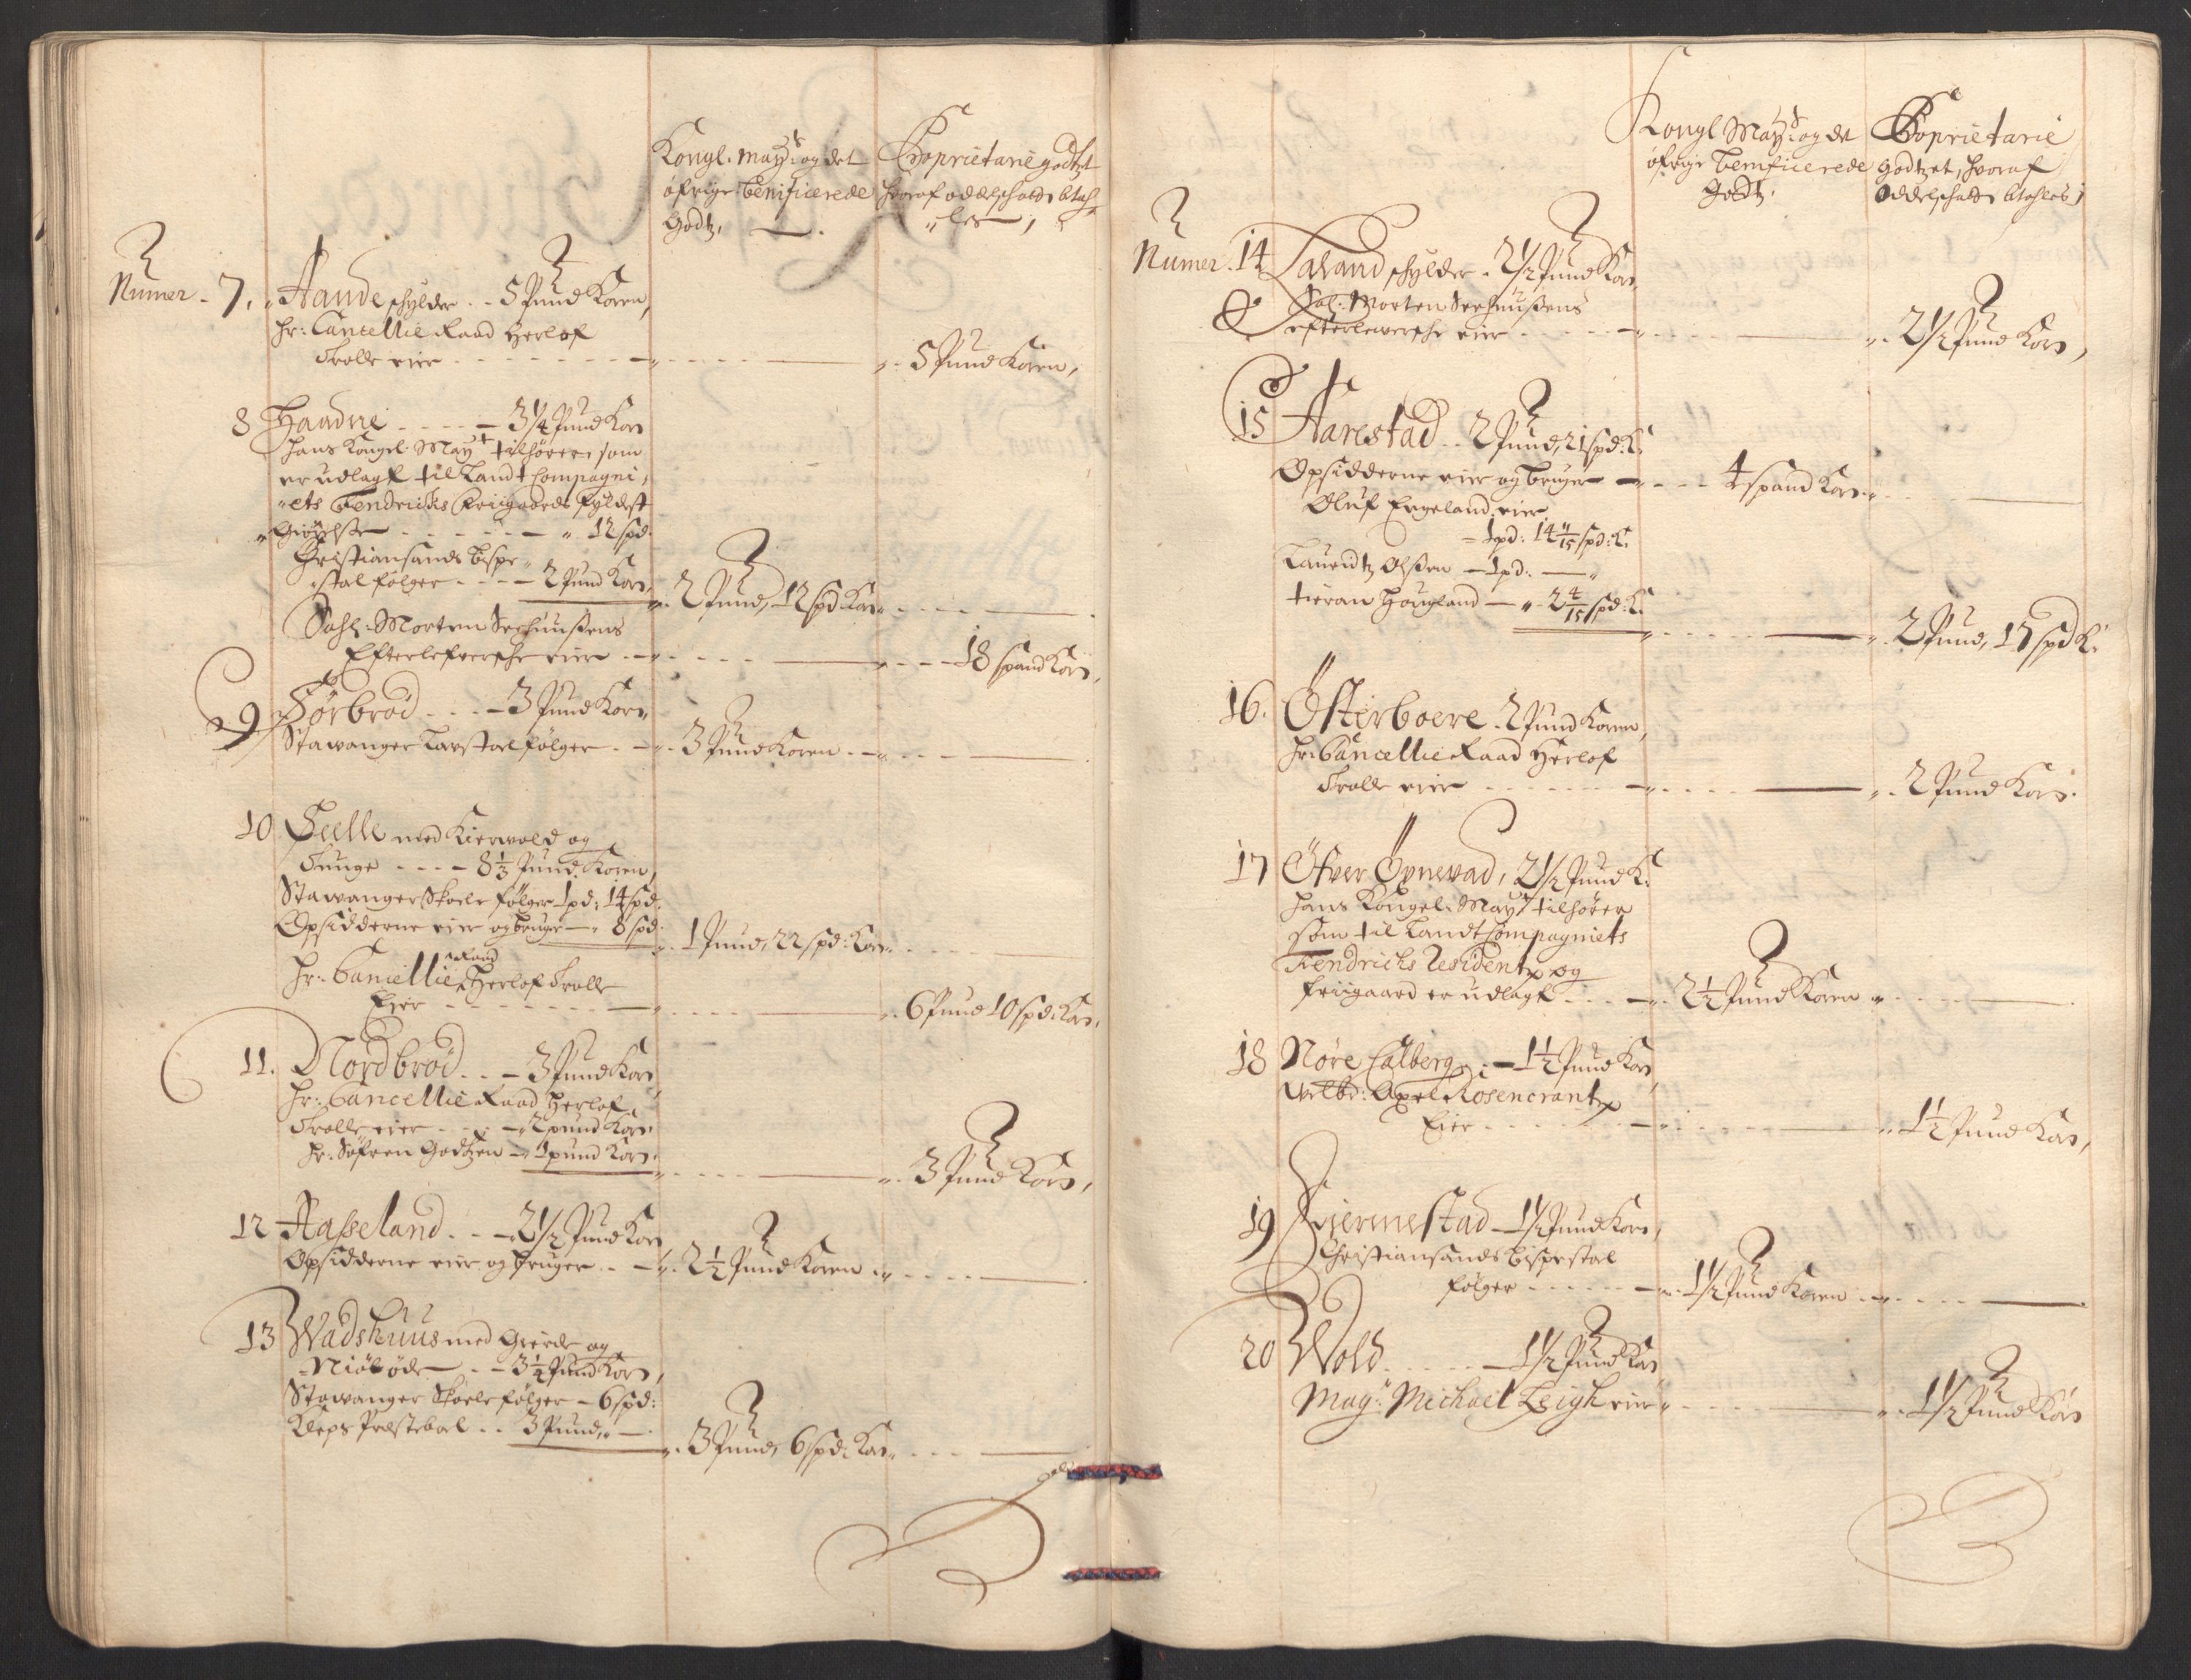 Kongl. Mayts og det
öfrige benificerede
Godtz,
Proprietarie godtzet
hvoraf oddelschatt betah-
les,
Numer - 7. Aande schylder - - 5 Pund Koren,
Hr: Cancellie Raad Herlof
Trolle eier - - - 5 Pund Koren,
8 Haadne - - - - 3 1/4 Pund Korn
Hans Kongel. Mayt tilhörer som
er udlagt til Landt Compagni,
ets Fendrichs friigaards fyldest
Giörelse - - - 12 spd.
Christiansands bispe-
stol følger - - - 2 Pund Korn,
2 Pund, 12 spd Korn
Sahl. Morten Seehuusens
Efterlefversche eier - - - 18 spand Korn,
9 Sörbröd - - - 3 Pund Korn
Stawanger følger - - 3 Pund Koren - -
10 med Kierwold og
Tunge - - - 8 1/3 Pund Koren,
Stawanger Skoele følger 1 pd: 14 spd.
Opsidderne eier og bruger - 8 spd
1 Pund, 22 spd: Korn
Hr: Cancellie Raad Herlof Trolle
Eier - - - 6 Pund 10 spd. Korn,
11. Nordbröd - - - 3 Pund Korn,
Hr: Cancellie Raad Herlof
Trolle eier - - - 2 pund Korn.
Hr. Söfren Godtzen - 1 pund Korn.
3 Pund Korn,
12 Aasseland - - - 2 1/2 Pund Korn
Opsidderne eier og bruger - - 2 1/2 Pund Koren
13 Wadshuus med Gierde og
Niöböde - - - 3 1/4 Pund Korn,
Stawanger Skoele følger - 6 spd:
Kleps Præstebol - - 3 Pund,
3 Pund, 6 spd: Korn
Kongl Mayts og de
öfrige benificerede
Godtz.
Proprietarie
Godtzet, hvoraf
Oddelschatt betahles,
Numer. 14 Laland schylder - 2 1/2 Pund Korn.
Sal: Morten Seehuusens
efterlewersche eier - - - 2 1/2 Pund Korn,
15 Aarestad - - 2 Pund, 21 spd: K:
Opsidderne eier og bruger - - - 4 spand Korn
Oluf Ergeland eier
- 1 pd: 14 11/15 spd: K:
Lauridtz Olssen - 1 pd: -
Hougland - 2 4/15 spd: K:
2 Pund, 17 spd K:
16. Österboere - 2 Pund Koren,
Hr: Cancellie Raad Herlof
Trolle eier - - - 2 Pund Korn.
17 Öfver Öxnevad, 2 1/2 Pund K:
Hans Kongel. Mayt tilhörer
som til Landt Compagniets
Fendrichs Residentz og
friigaard er udlagt - - - 2 1/2 Pund Koren
18 Nöre Calberg - - 1 1/2 Pund Korn,
Velbr: Axel Rosencrantz
Eier - - - 1 1/2 Pund Korn,
19 Hiermestad - 1 1/2 Pund Korn,
Christiansands bispestol
følger - - - 1 1/2 Pund Koren - -
20 Wold - - - 1 1/2 Pund Korn,
Magr: Michael Leigh eier - - - 1 1/2 Pund Korn